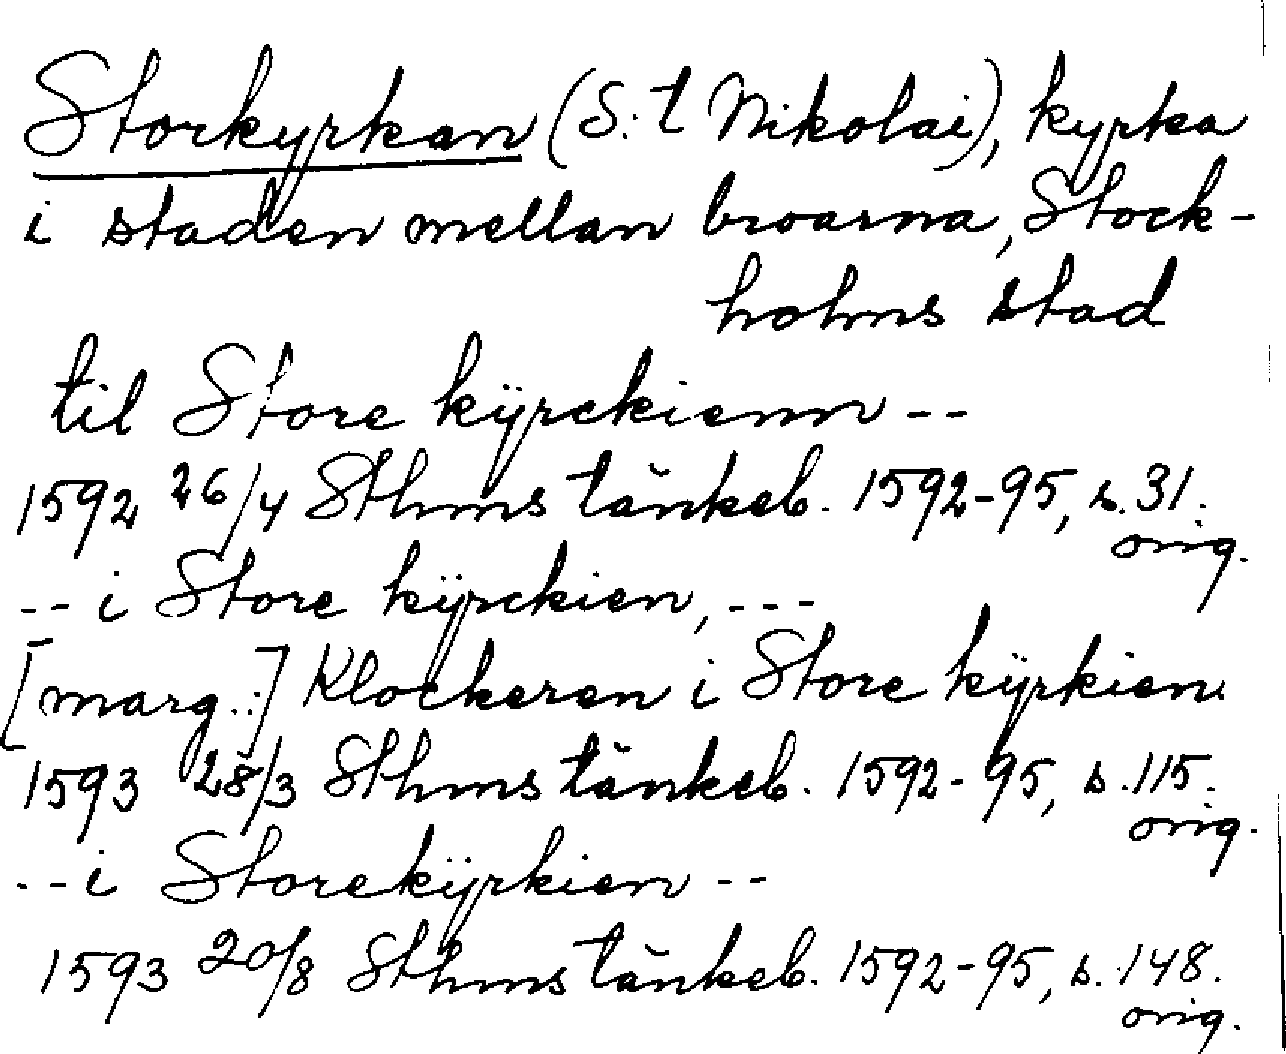 Storkyrkan (S:t Nikolai), kyrka
i staden mellan broarna, Stock-
holms stad
til Store kÿrckienn --
1592 26/4 Sthms tänkeb. 1592-95, s. 31.
orig.
-- i Store kÿrckien, ---
[marg.:] Klockeren i Store kÿrkien
1593 28/3 Sthms tänkeb. 1592-95, s. 115.
orig.
-- i Storekÿrkien --
1593 20/8 Sthms tänkeb. 1592-95, s. 148.
orig.